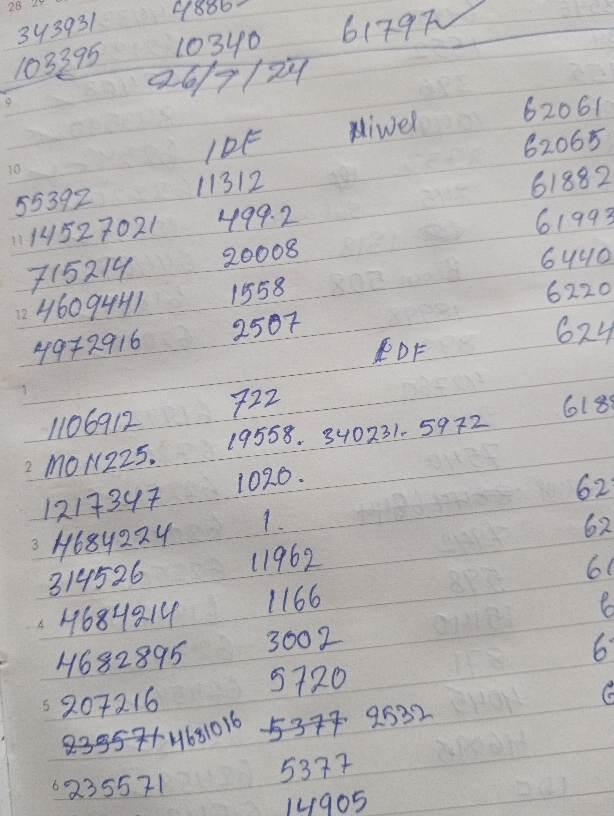 28 29
343931 4886
103395 10340 61797
26/7/24
9
IDF Niwel 62061
10
55392 11312 62065
11 14527021 499.2 61882
715214 20008 61993
12 4609441 1558 6440
4972916 2507 6220
1 IDF 624
1106912 722
2 MOH225. 19558. 340231. 5972 6188
1217347 1020.
3 4684224 1. 62
314526 11962 62
4 4684214 1166 61
4682895 3002 6
5 207216 5720 6
235571 4681016 5377 2532 6
6 235571 5377
14905